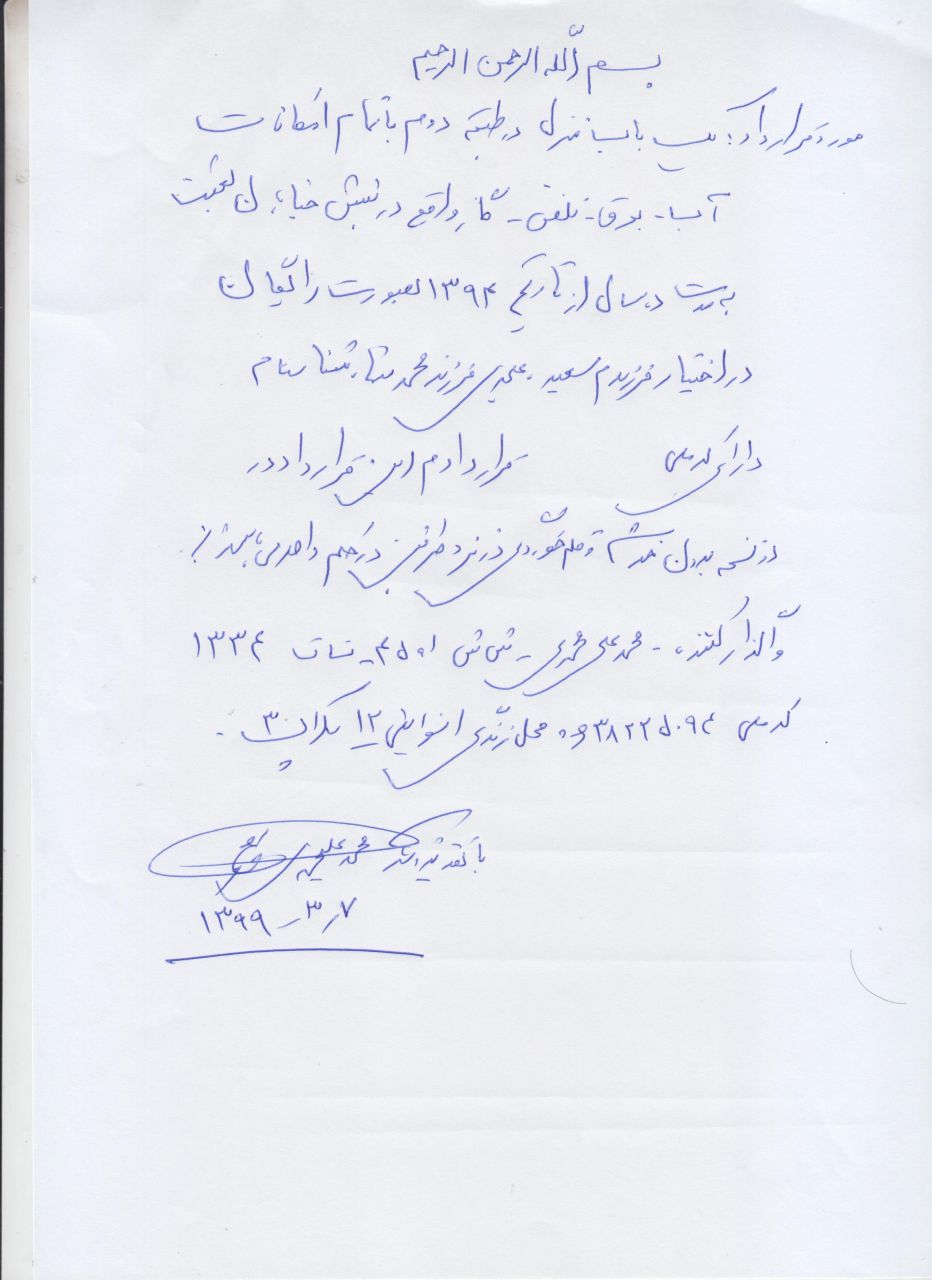 بسم الله الرحمن الرحیم
مورد قرارداد: یک باب منزل در طبقه دوم با تمام امکانات
آب - برق - تلفن - گاز واقع در نبش خیابان بعثت
به مدت ده سال از تاریخ ۱۳۹۴ بصورت رایگان
در اختیار فرزندم سعید محمدی فرزند محمد شناسنامه
دارای کد ملی قرار دادم این قرارداد در
دو نسخه بدون خدشه و قلم خوردگی در نزد طرفین در حکم واحد می باشد
واگذار کننده - محمد علی محمدی - ش ش ۴۵۰۱ - ۱۳۳۴
کد ملی محل زندگی ۱۲ پلاک ۳ -
با تقدیم محمد علی محمدی
۱۳۹۹ - ۳ ر ۷